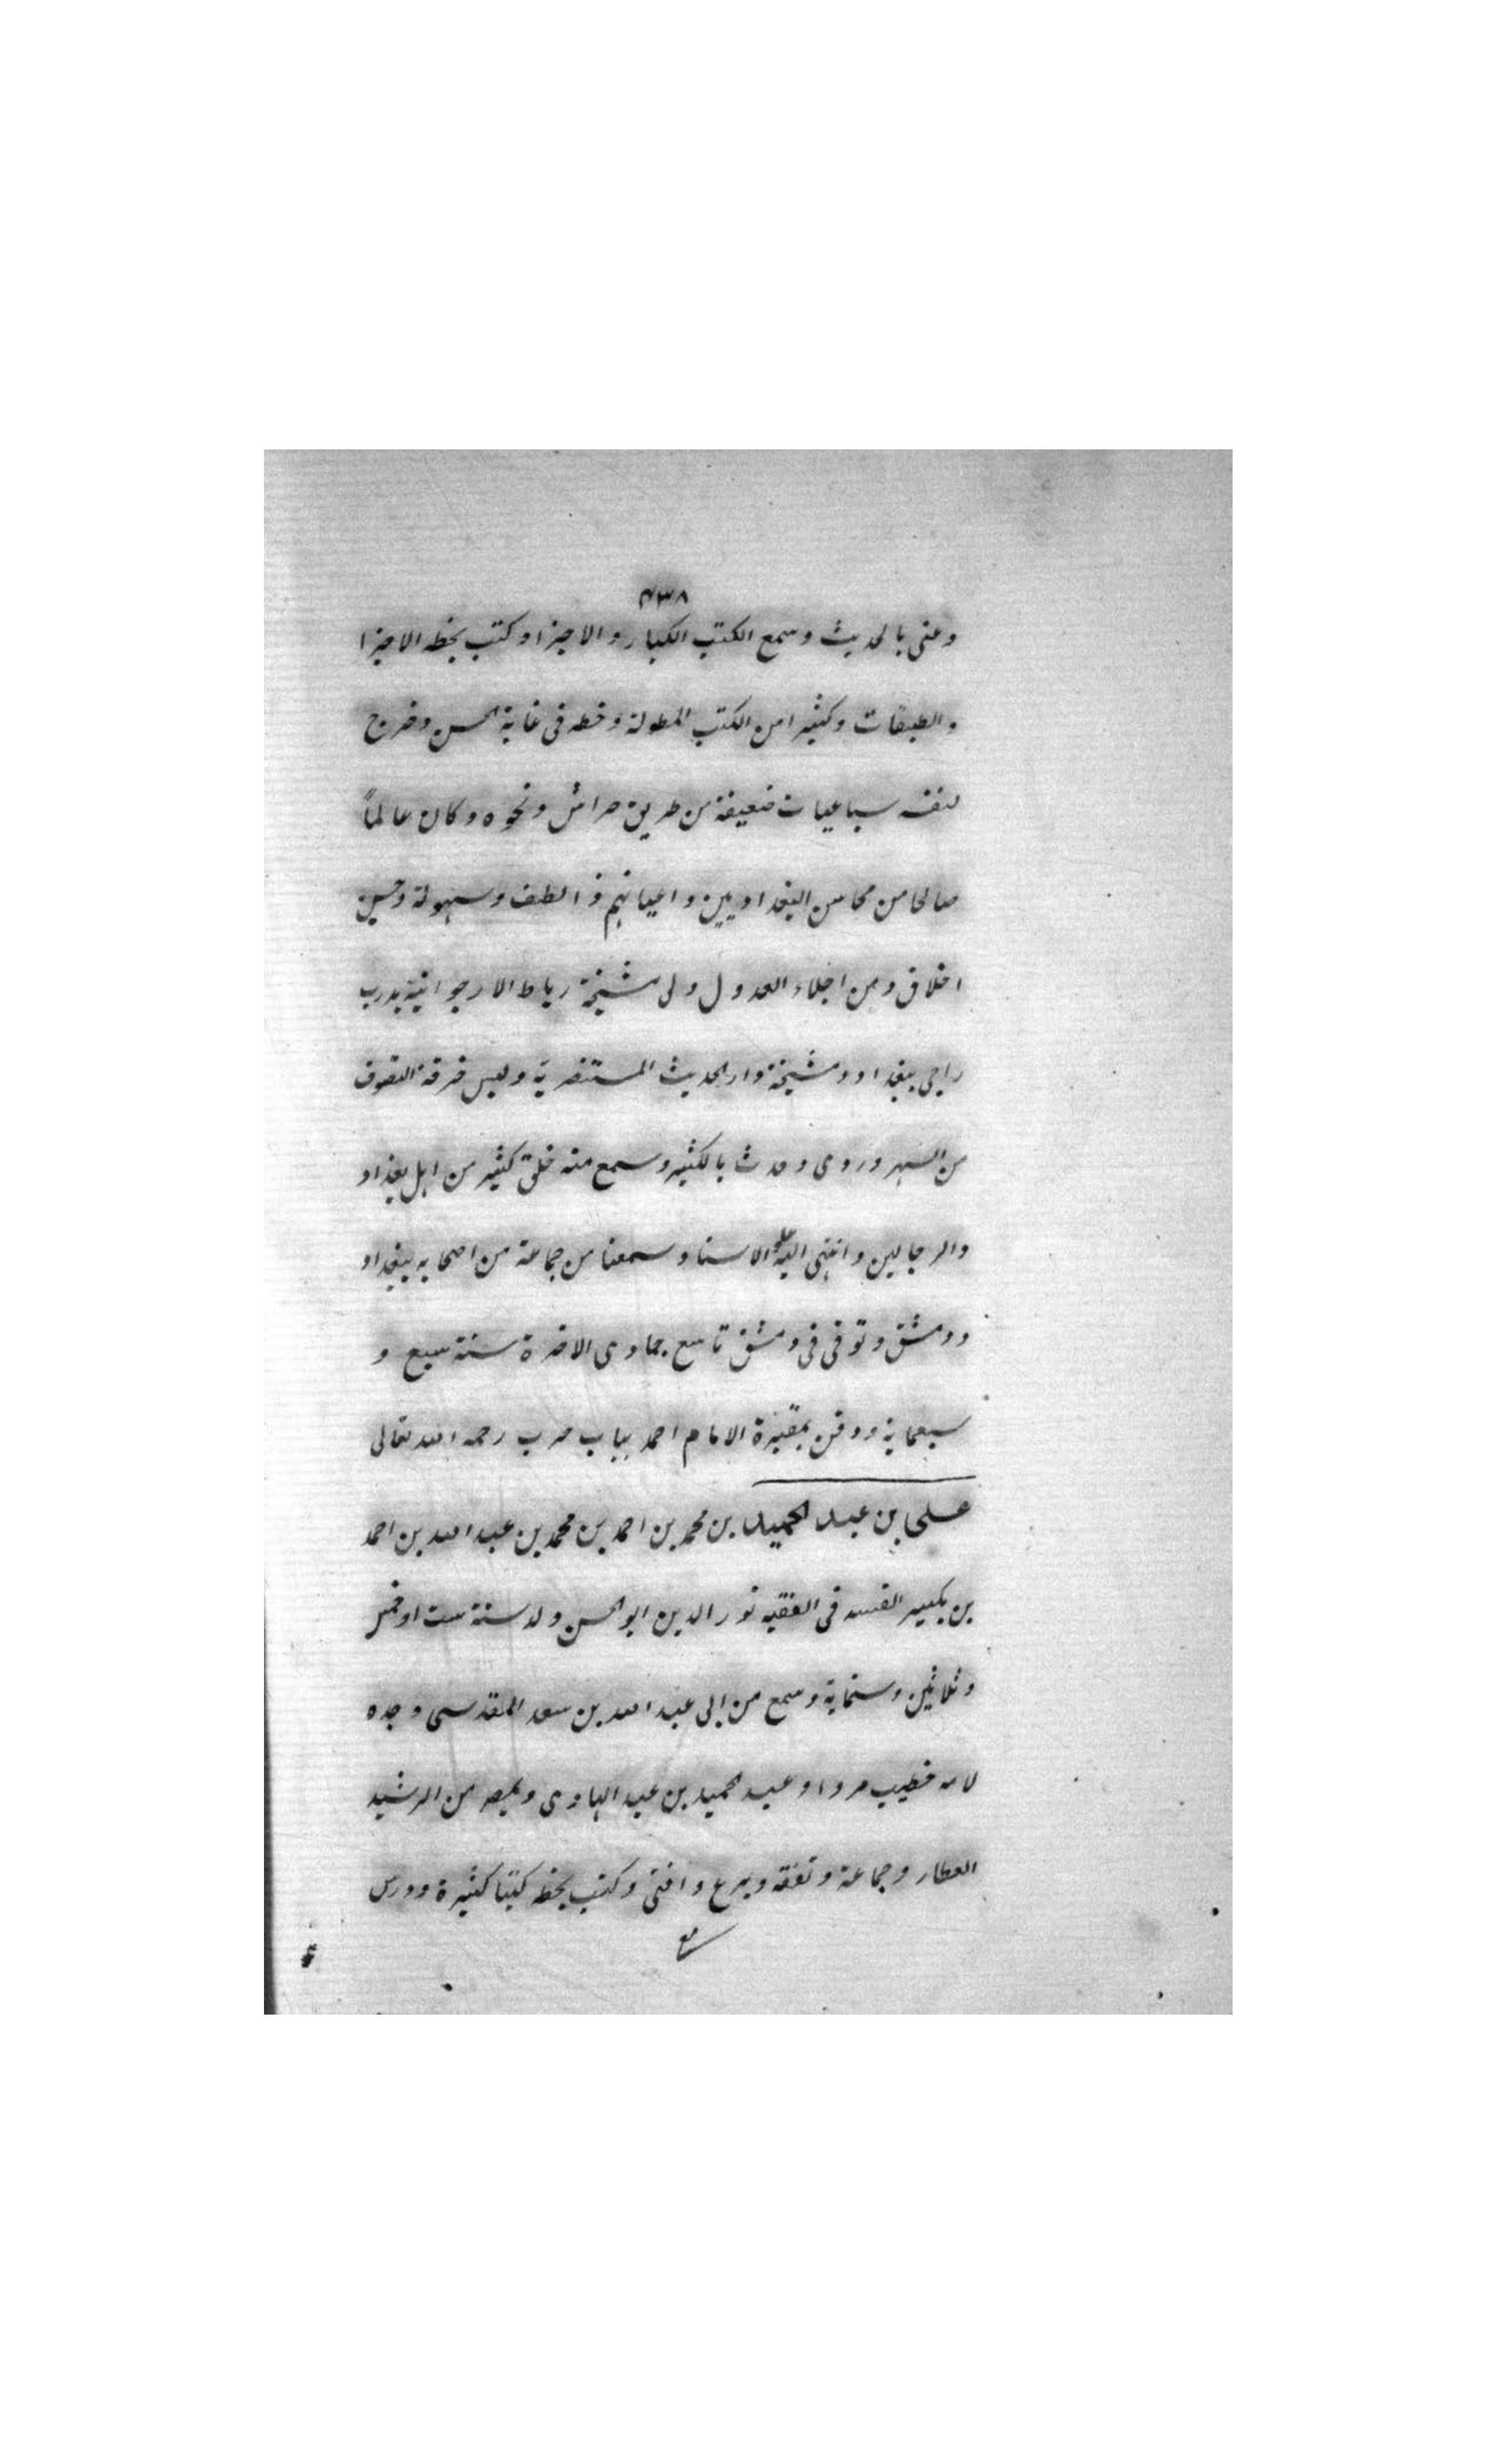 ٤٣٨
وعنى بالحديث وسمع الكتب الكبار والاجزا وكتب بخطه الاجزا
والطبقات وكثيرا من الكتب المطولة وخطه فى غاية الحسن وخرج
لنفسه سباعيات ضعيفة من طريق خراش ونحوه وكان عالماً
صالحا من محاسن البغداديين واعيانهم ذا لطف وسهولة وحسن
اخلاق ومن اجلاء العدول ولى مشيخة رباط الارجوانية بدرب
راجى ببغداد ومشيخة دار الحديث المستنصرية ولبس خرقة التصوف
من السهروردى وحدث بالكثير وسمع منه خلق كثير من اهل بغداد
والرحالين وانتهى اليه علو الاسناد وسمعنا من جماعة من اصحابه ببغداد
ودمشق وتوفى فى دمشق تاسع جمادى الاخرة سنة سبع و
سبعماية ودفن بمقبرة الامام احمد بباب حرب رحمه الله تعالى
على بن عبد الحميد بن محمد بن احمد بن محمد بن عبد الله بن احمد
بن بكير الفقيه نور الدين ابو الحسن ولد سنة ست او خمس
وثلاثين وستماية وسمع من ابى عبد الله بن سعد المقدسى وجده
لامه خطيب مردا وعبد الحميد بن عبد الهادى وبمصر من الرشيد
العطار وجماعة وتفقه وبرع وافتى وكتب بخطه كتبا كثيرة ودرس